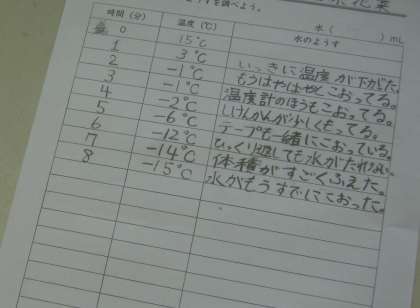 を調べよう。
時間(分) 温度(℃) 水のようす 水( ) mL
0 15℃
1 3℃ いっきに温度が下がった。
2 -1℃ もうはやはやくこおってる。
3 -1℃ 温度計のほうもこおってる。
4 -2℃ しけんかんが少しくもってる。
5 -6℃ テープも一緒にこおっている。
6 -12℃ ひっくり返しても水がたれない。
7 -14℃ 体積がすごくふえた。
8 -15℃ 水がもうすでにこおった。